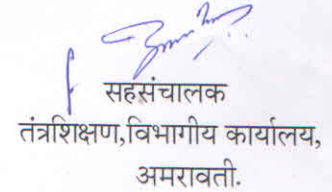 सहसंचालक
तंत्रशिक्षण,विभागीय कार्यालय,
अमरावती.